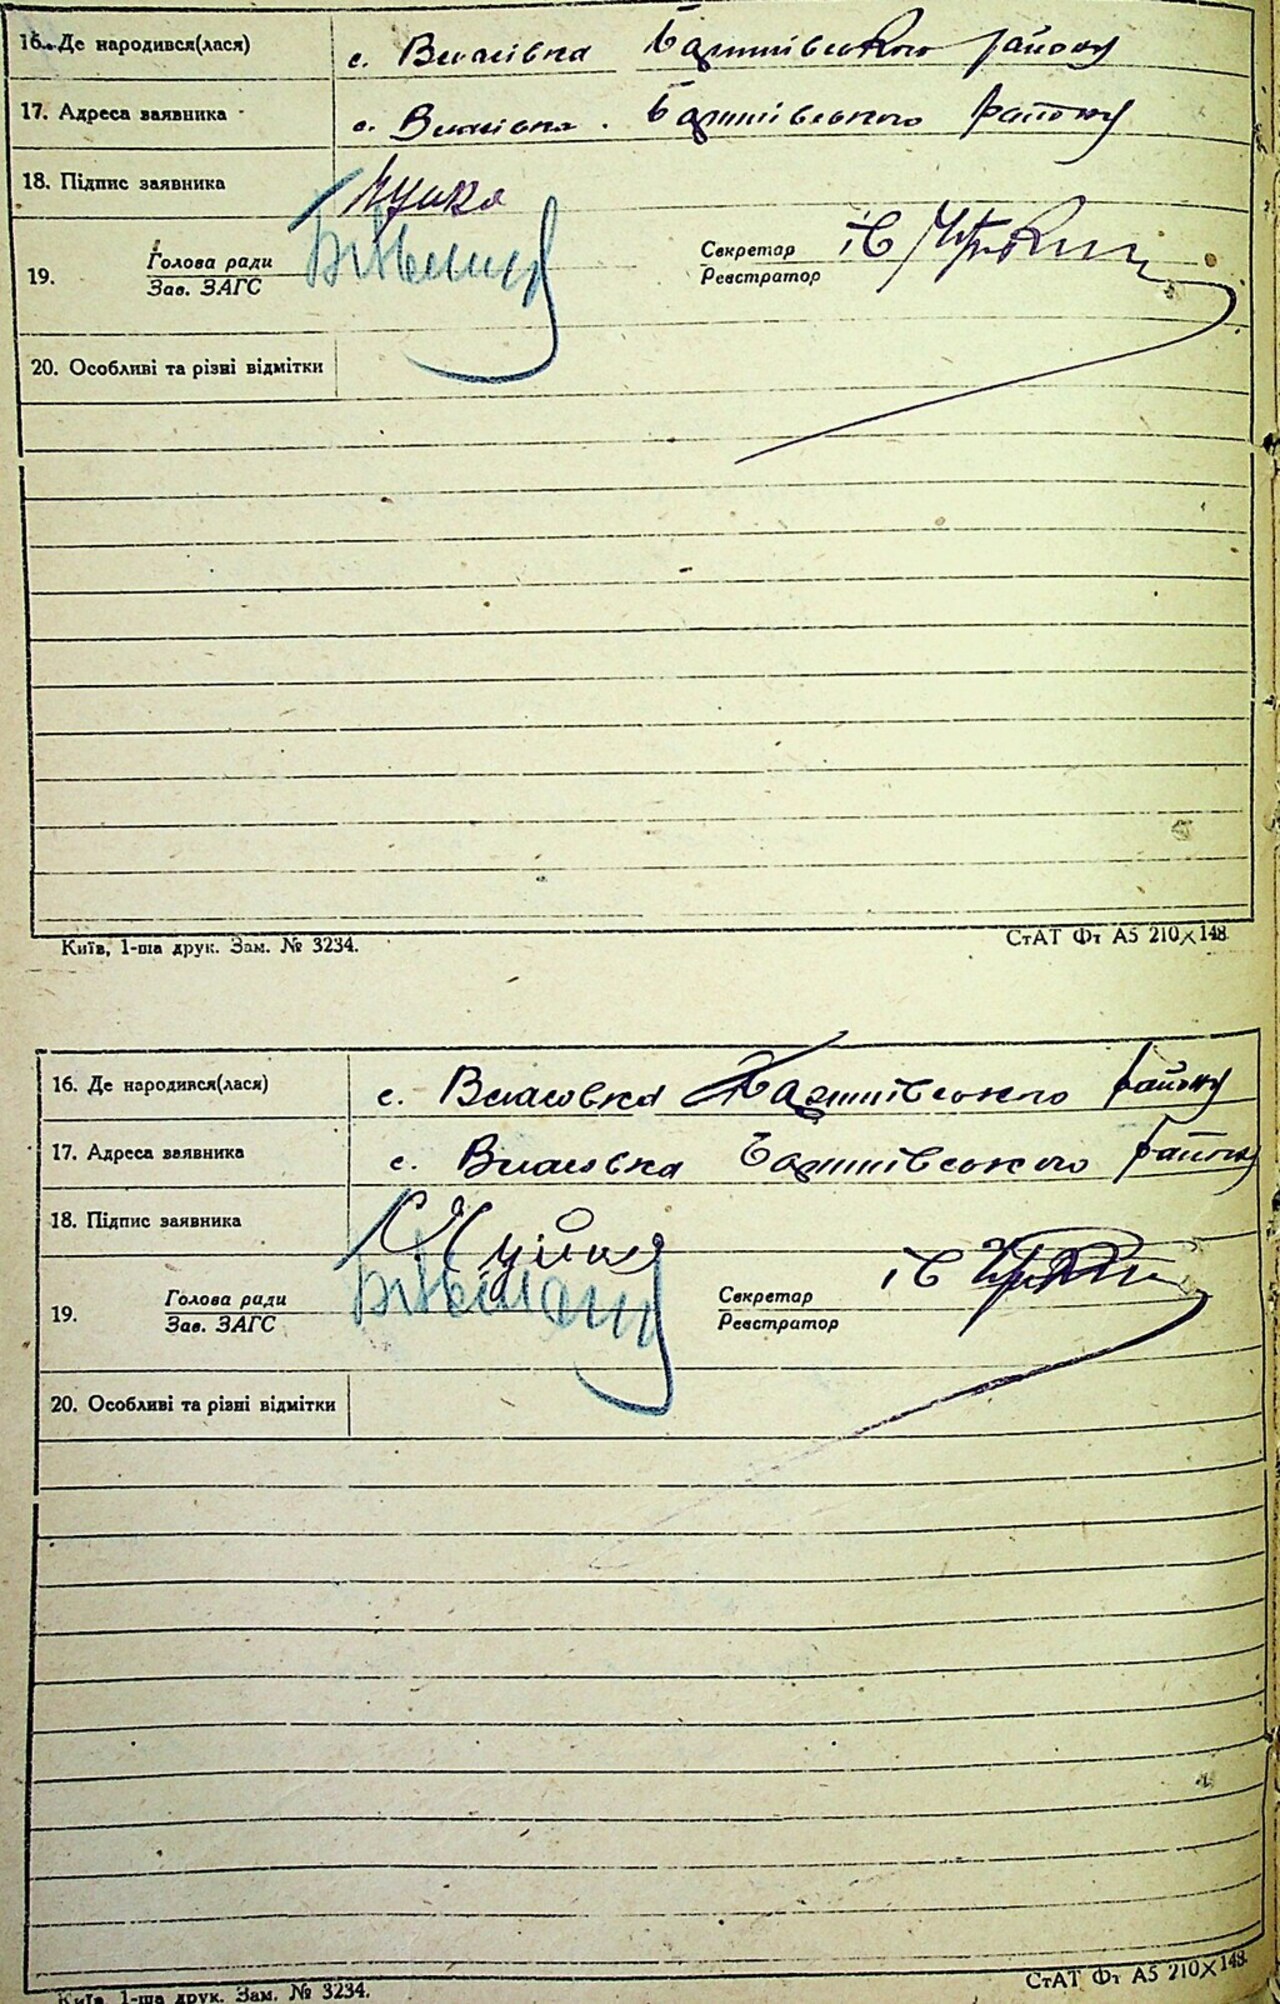 16. Де народився(лася) с. Власівка району
17. Адреса заявника с. Власівка району
18. Підпис заявника
Голова ради Секретар
19.
Зав. ЗАГС Реєстратор
20. Особливі та різні відмітки
Київ, 1-ша друк. Зам. № 3234. СтАТ Фт А5 210×148
16. Де народився(лася) с. Власовка району
17. Адреса заявника с. Власовка району
18. Підпис заявника
Голова ради Секретар
19.
Зав. ЗАГС Реєстратор
20. Особливі та різні відмітки
Київ, 1-ша друк. Зам. № 3234. СтАТ Фт А5 210×148